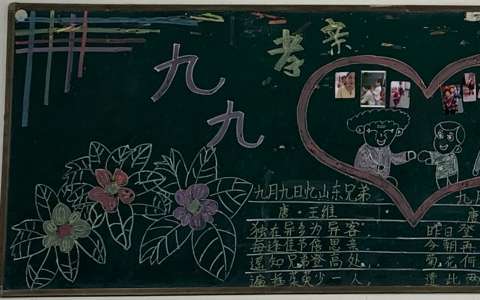 九九
孝亲
九月九日忆山东兄弟
唐·王维
独在异乡为异客
每逢佳节倍思亲
遥知兄弟登高处,
遍插茱萸少一人,
九
唐
昨日登
今朝再
菊花何
遭此两